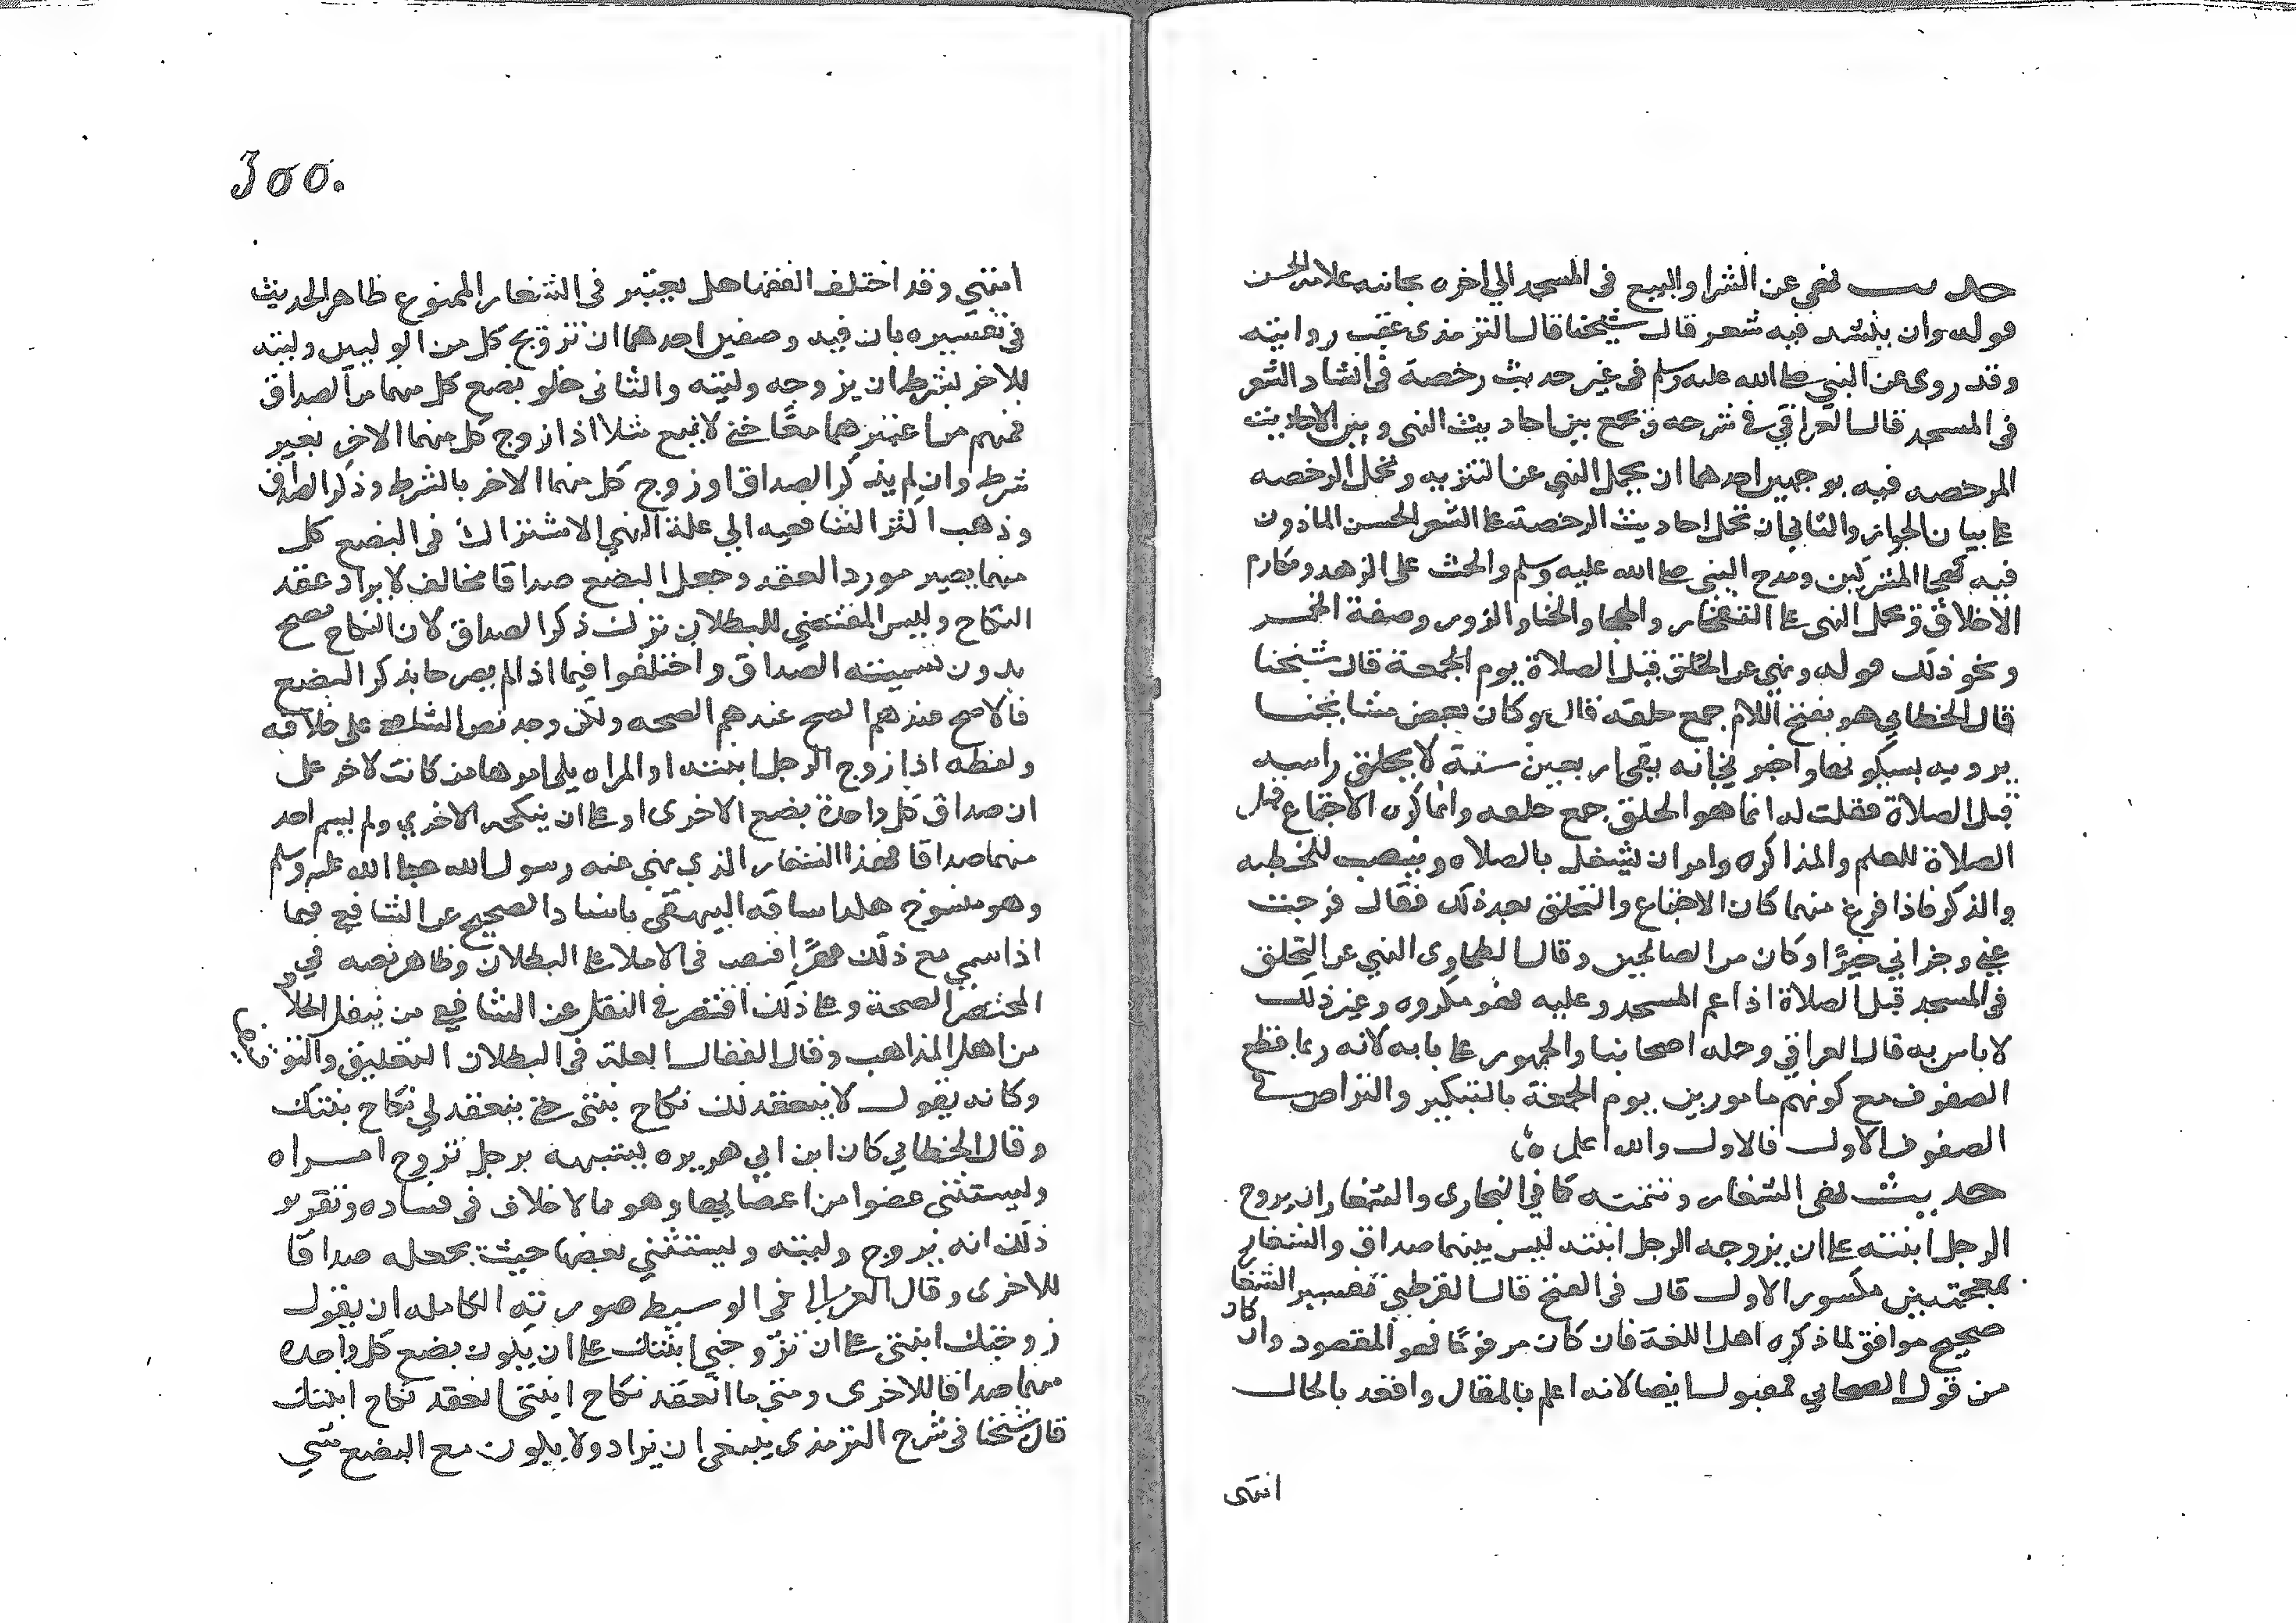 حديث نهى عن الشرا والبيع في المسجد الي اخره بجانبه علامة الحسن
قوله وان ينشد فيه شعر قال شيخنا قال الترمذى عقب روايته
وقد روى عن النبي صلى الله عليه وسلم في غير حديث رخصة في انشاد الشعر
في المسجد قال العراقي في شرحه ويجمع بين احاديث النهى وبين الاحاديث
المرخصه فيه بوجهين احدهما ان يحمل النهي عن التنزيه وتحمل الرخصه
على بيان الجواز والثاني ان تحمل احاديث الرخصة على الشعر الحسن الماذون
فيه كهجا المشركين ومدح النبي صلى الله عليه وسلم والحث على الزهد ومكارم
الاخلاق ويحمل النهى على التفاخر والهجا والخنا والزور وصفة الخمر
ونحو ذلك قوله ونهي عن التحلق قبل الصلاة يوم الجمعة قال شيخنا
قال الخطابي هو بفتح اللام جمع حلقه قال وكان بعض مشايخنا
يرويه بسكونها واخبرني انه بقى اربعين سنة لا يحلق راسه
قبل الصلاة فقلت له انما هو الحلق جمع حلقه وانما كره الاجتماع قبل
الصلاة للعلم والمذاكره وامر ان يشتغل بالصلاه وينصت للخطبه
والذكر فاذا فرغ منها كان الاجتماع والتحلق بعد ذلك فقال فرجت
عني وجزاني خيرًا وكان من الصالحين وقال الطحاوى النهي عن التحلق
في المسجد قبل الصلاة اذا عم المسجد وعليه فهو مكروه وغير ذلك
لا باس به قال العراقي وحمله اصحابنا والجمهور على بابه لانه ربما قطع
الصفوف مع كونهم مامورين يوم الجمعة بالتبكير والتراص في
الصفوف الاول فالاول والله اعلم
حديث نهى الشغار وتتمته كما في البخارى والشغار ان يزوج
الرجل ابنته على ان يزوجه الرجل ابنته ليس بينهما صداق والشغار
بمعجمتين مكسور الاول قال في الفتح قال القرطبي تفسير الشغار
صحيح موافق لما ذكره اهل اللغة فان كان مرفوعًا فهو المقصود وان كان
من قول الصحابي فمقبول ايضا لانه اعلم بالمقال وافقه بالحال
انتهى
300.
انتهي وقد اختلف الفقها هل يعتبر في الشغار الممنوع ظاهر الحديث
في تفسيره بان فيه وصفين احدهما ان تزويج كل من الوليين وليته
للاخر بشرط ان يزوجه وليته والثاني خلو بضع كل منهما من الصداق
فمنهم من اعتبرهما معًا حتى لا يمنع مثلا اذا زوج كل منهما الاخر بغير
شرط وان لم يذكر الصداق او زوج كل منهما الاخر بالشرط وذكر الصداق
وذهب اكثر الشافعيه الي علة النهي الاشتراك في البضع كل
منهما يصير مورد العقد وجعل البضع صداقا مخالف لايراد عقد
النكاح وليس المقتضي للبطلان ترك ذكر الصداق لان النكاح يصح
بدون تسميته الصداق واختلفوا فيما اذا لم يصرحا بذكر البضع
فالاصح عندهم الصحه ولكن وجد نص الشافعي على خلافه
ولفظه اذا زوج الرجل ابنته او المراه يلى امرها من كانت لاخر على
ان صداق كل واحدة بضع الاخرى او على ان ينكحه الاخري ولم يسم احد
منهما صداقا فهذا الشغار الذي نهي عنه رسول الله صلى الله عليه وسلم
وهو منسوخ هكذا ساقه البيهقي باسناد الصحيح عن الشافعي فيما
اذا سمي مع ذلك مهرًا فنص في الاملا على البطلان وظاهر نصه في
المختصر الصحة وعلى ذلك اقتصر في النقل عن الشافعي من ينقل الخلاف
من اهل المذاهب وقال القفال العلة في البطلان التعليق والتوقيف
وكانه يقول لا ينعقد لك نكاح بنتى حتى ينعقد لي نكاح بنتك
وقال الخطابي كان ابن ابي هريره يشبهه برجل تزوج امراه
ويستثنى عضوا من اعضايها وهو مما لا خلاف في فساده وتقرير
ذلك انه يزوج وليته ويستثني بعضها حيث يجعله صداقا
للاخرى وقال الغزالي في الوسيط صورته الكامله ان يقول
زوجتك ابنتى على ان تزوجني ابنتك على ان يكون بضع كل واحدة
منهما صداقا للاخرى ومتى ما انعقد نكاح ابنتى انعقد نكاح ابنتك
قال شيخنا في شرح الترمذى ينبغي ان يزاد ولا يكون مع البضع شي